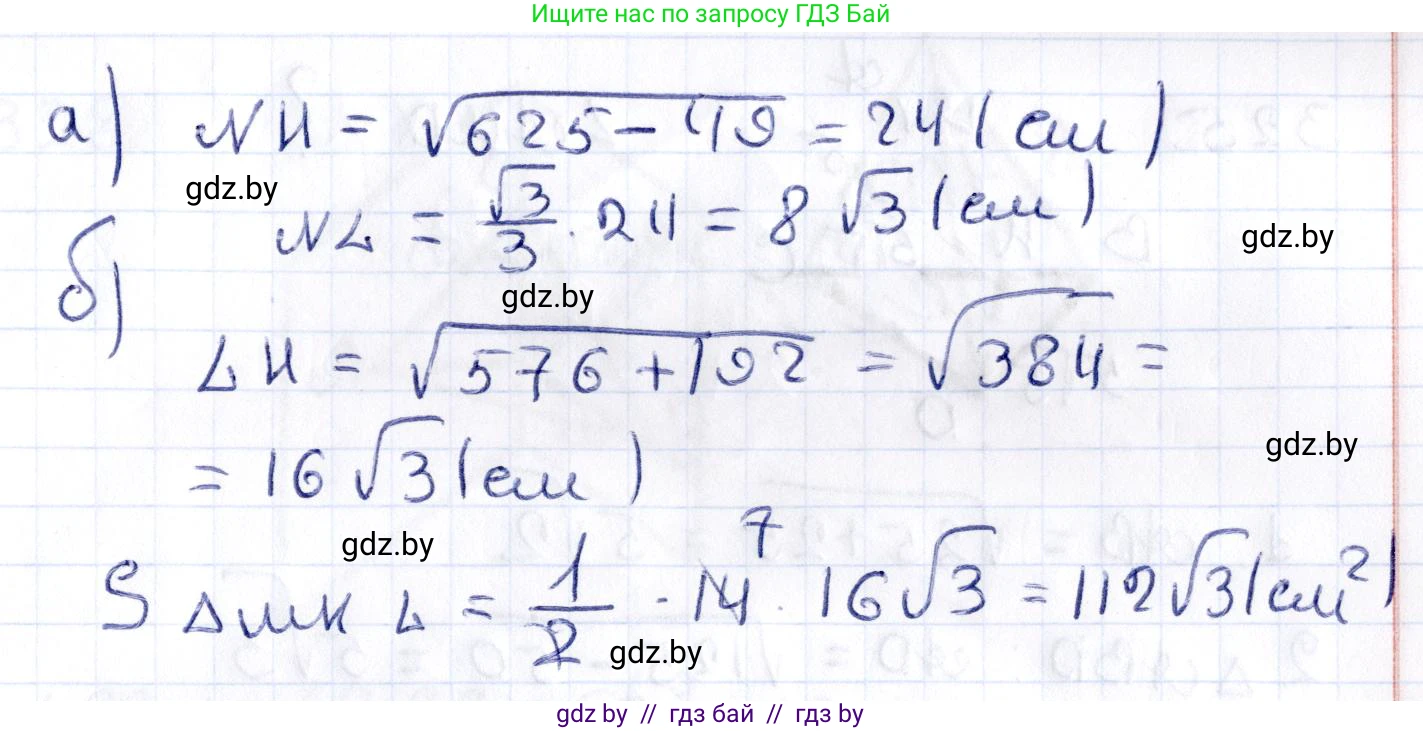 Ищите нас по запросу ГДЗ Бай
а) NH = √625 - 49 = 24 (см)
gdz.by
NL = √3/3 · 24 = 8√3 (см)
gdz.by
б)
gdz.by
LH = √576 + 192 = √384 =
= 16√3 (см)
gdz.by
gdz.by
S △MKL = 1/2 · 14 7 · 16√3 = 112√3 (см²)
gdz.by
gdz.by // гдз бай // гдз by